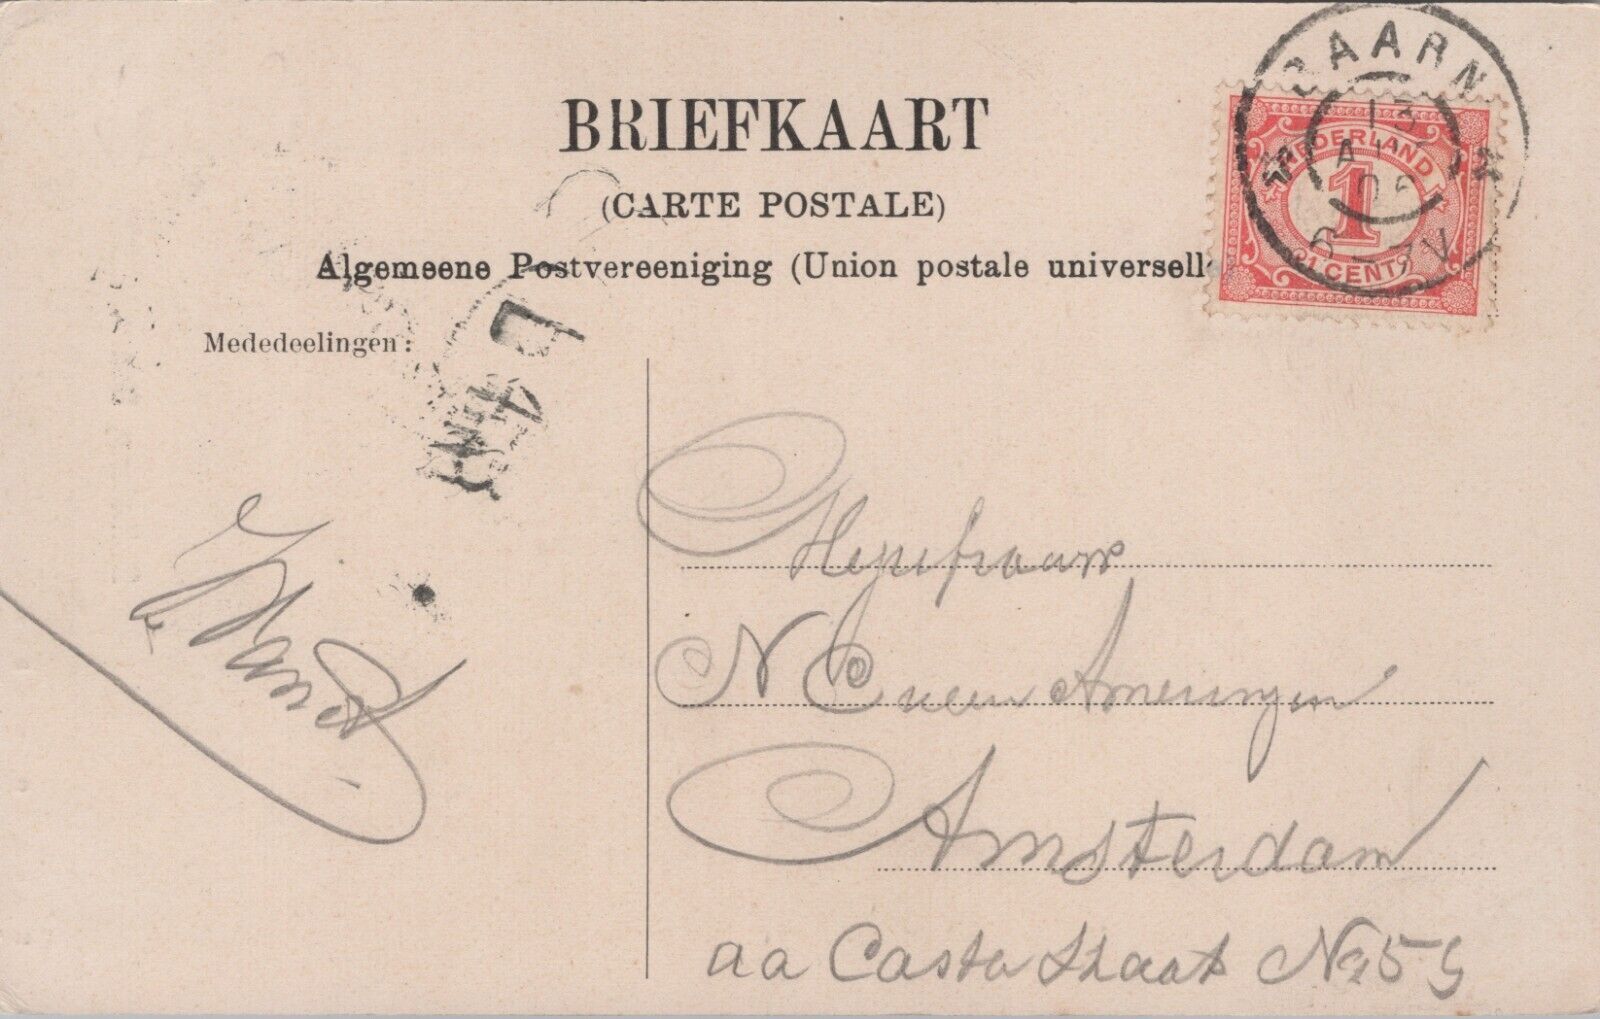 BRIEFKAART
(CARTE POSTALE)
Algemeene Postvereeniging (Union postale universelle
BAARN
13
6 - 7V
NEDERLAND
1
1 CENT
Mededeelingen:
L 4
N
N C van Ameringen
Amsterdam
aa Casta Straat No 59